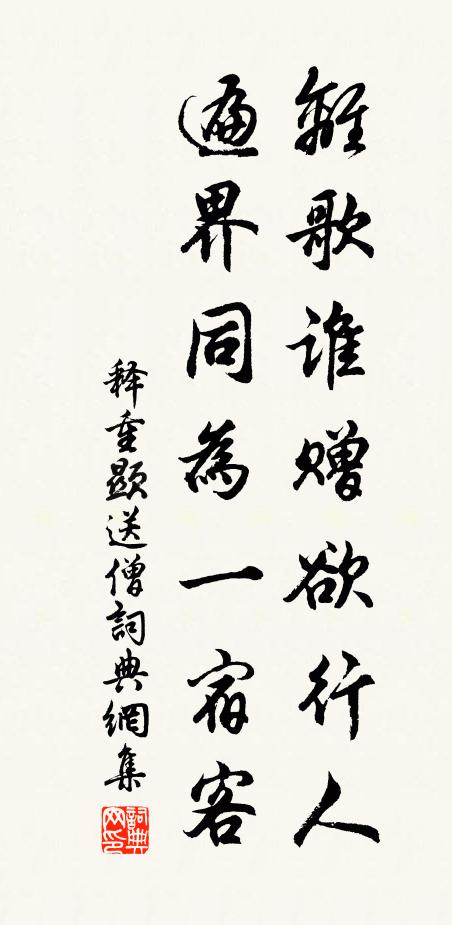 離歌誰贈欲行人
遍界同為一宿客
释重顯送僧詞典網集
詞典網印